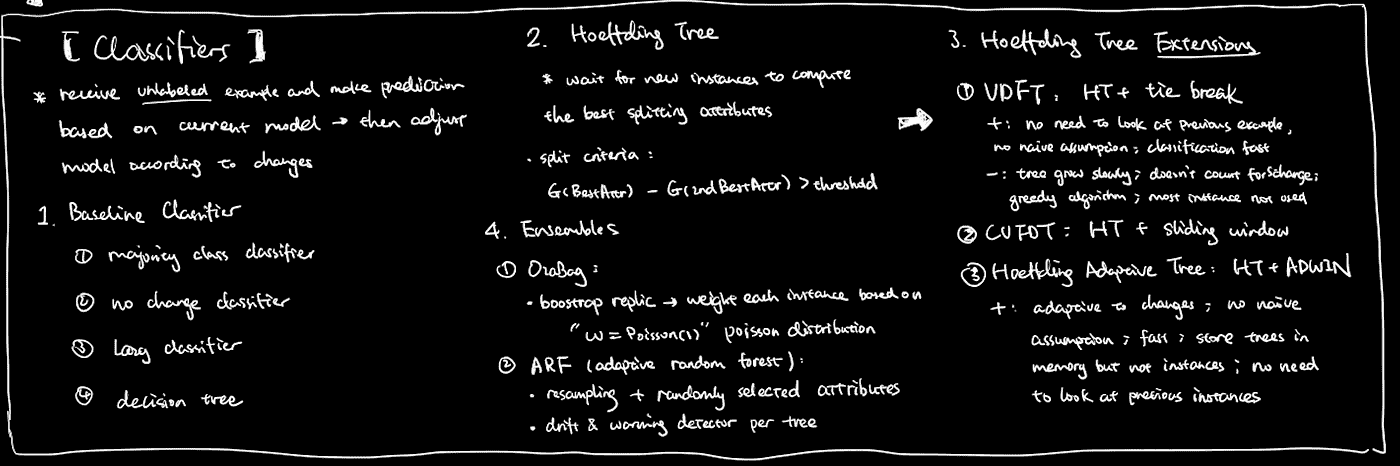 [Classifiers]
* receive unlabeled example and make prediction
based on current model → then adjust
model according to changes
1. Baseline Classifier
① majority class classifier
② no change classifier
③ Lazy classifier
④ decision tree
2. Hoeffding Tree
* wait for new instances to compute
the best splitting attributes
· split criteria :
G(BestAttr) - G(2ndBestAttr) > threshold
4. Ensembles
① OzaBag :
· boostrap replic → weight each instance based on
"w = Poisson(1)" poisson distribution
② ARF (adaptive random forest) :
· resampling + randomly selected attributes
· drift & warning detector per tree
3. Hoeffding Tree Extensions
① VDFT : HT + tie break
+ : no need to look at previous example,
no naive assumption ; classification fast
- : tree grow slowly ; doesn't count for change ;
greedy algorithm ; most instance not used
② CVFDT : HT + sliding window
③ Hoeffding Adaptive Tree : HT + ADWIN
+ : adaptive to changes ; no naive
assumption ; fast ; store trees in
memory but not instances ; no need
to look at previous instances